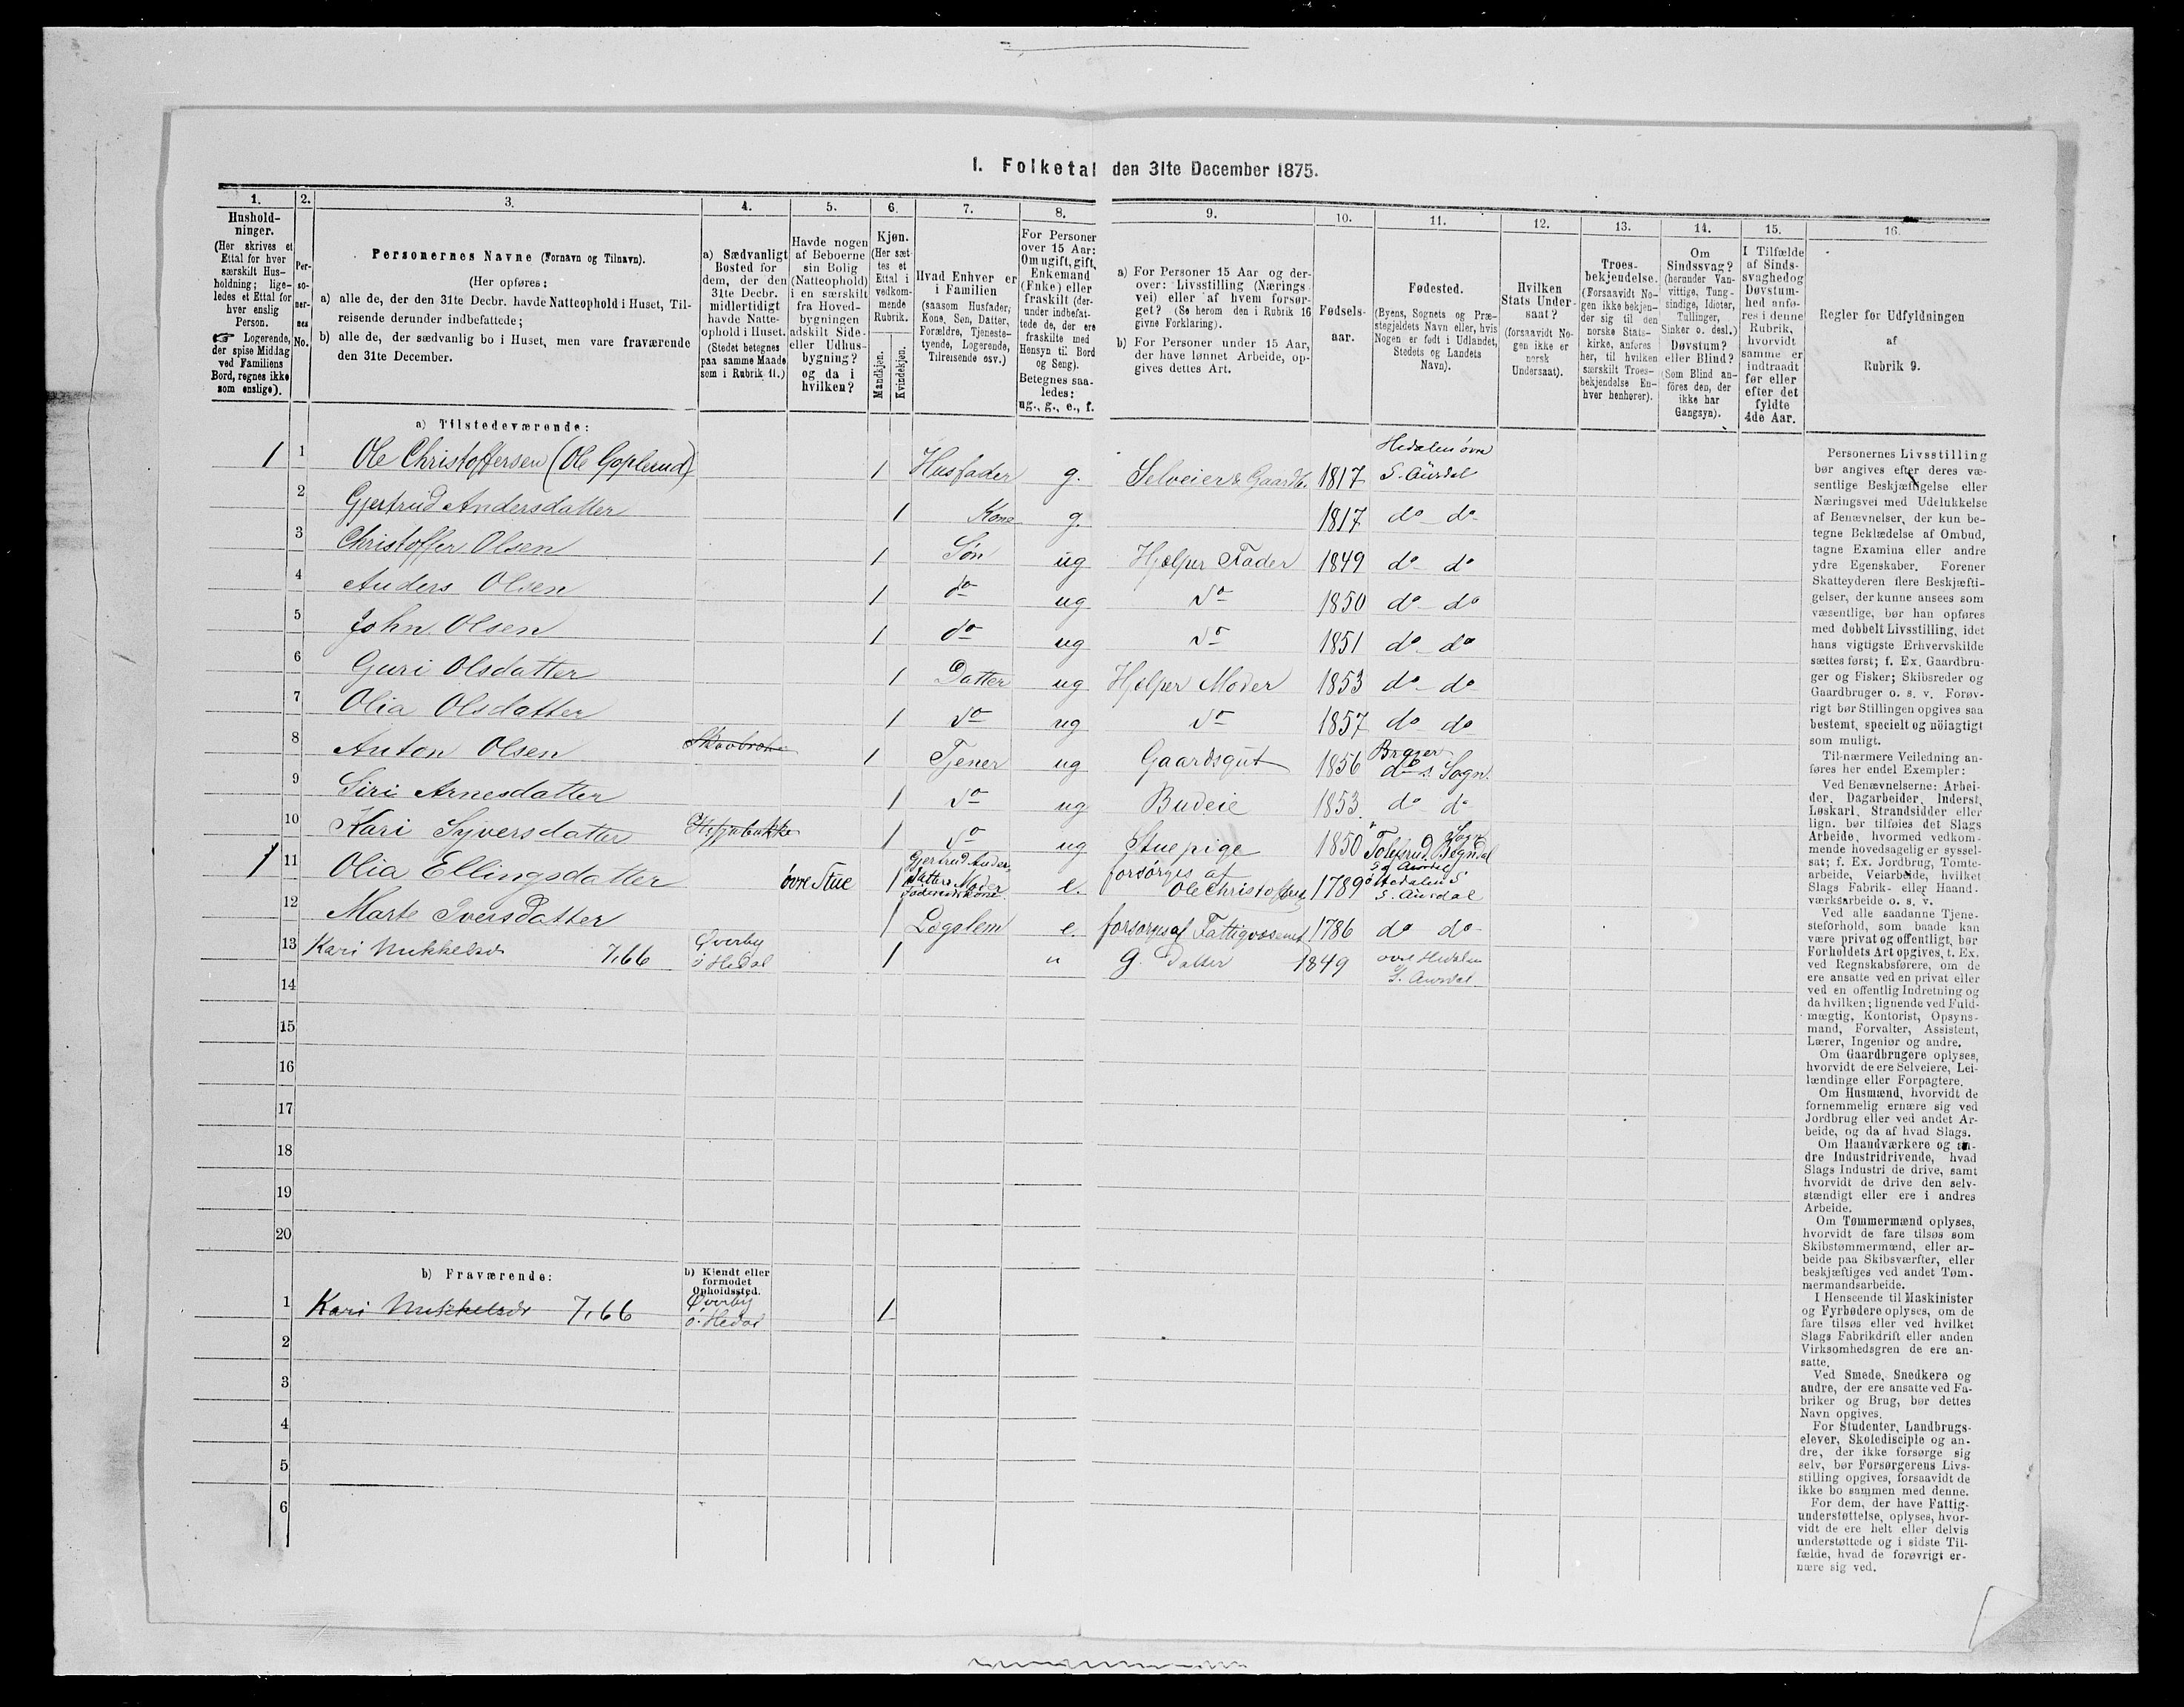 I. Folketal den 31te December 1875.
1.
Hushold-
ninger.
(Her skrives et
Ettal for hver
særskilt Hus-
holdning; lige-
ledes et Ettal for
hver enslig
Person.
☞ Logerende,
der spise Middag
ved Familiens
Bord, regnes ikke
som enslige).
2.
Per-
so-
ner-
nes
No.
3.
Personernes Navne (Fornavn og Tilnavn).
(Her opføres:
a) alle de, der den 31te Decbr. havde Natteophold i Huset, Til-
reisende derunder indbefattede;
b) alle de, der sædvanlig bo i Huset, men vare fraværende
den 31te December.
4.
a) Sædvanligt
Bosted for
dem, der den
31te Decbr.
midlertidigt
havde Natte-
ophold i Huset.
(Stedet betegnes
paa samme Maade
som i Rubrik 11.)
5.
Havde nogen
af Beboerne
sin Bolig
(Natteophold)
i en særskilt
fra Hoved-
bygningen
adskilt Side-
eller Udhus-
bygning?
og da i
hvilken?
6.
Kjøn.
(Her sæt-
tes et
Ettal i
vedkom-
mende
Rubrik.
Mandkjøn.
Kvindekjøn.
7.
Hvad Enhver er
i Familien
(saasom Husfader,
Kone, Søn, Datter,
Forældre, Tjeneste-
tyende, Logerende,
Tilreisende osv.)
8.
For Personer
over 15 Aar:
Om ugift, gift,
Enkemand
(Enke) eller
fraskilt (der-
under indbefat-
tede de, der ere
fraskilte med
Hensyn til Bord
og Seng).
Betegnes saa-
ledes:
ug., g., e., f.
9.
a) For Personer 15 Aar og der-
over: Livsstilling (Nærings-
vei) eller af hvem forsør-
get? (Se herom den i Rubrik 16
givne Forklaring).
b) For Personer under 15 Aar,
der have lønnet Arbeide, op-
gives dettes Art.
10.
Fødsels-
aar.
11.
Fødested.
(Byens, Sognets og Præ-
stegjeldets Navn eller, hvis
Nogen er født i Udlandet,
Stedets og Landets
Navn).
12.
Hvilken
Stats Under-
saat?
(forsaavidt No-
gen ikke er
norsk
Undersaat).
13.
Troes-
bekjendelse.
(Forsaavidt No-
gen ikke bekjen-
der sig til den
norske Stats-
kirke, anføres
her, til hvilken
særskilt Troes-
bekjendelse En-
hver henhører).
14.
Om
Sindssvag?
(herunder Van-
vittige, Tung-
sindige, Idioter,
Tullinger,
Sinker o. desl.)
Døvstum?
eller Blind?
(Som Blind an-
føres den, der
ikke har
Gangsyn).
15.
I Tilfælde
af Sinds-
svaghed og
Døvstum-
hed anfø-
res i denne
Rubrik,
hvorvidt
samme er
indtraadt
før eller
efter det
fyldte
4de Aar.
16.
Regler for Udfyldningen
af
Rubrik 9.
a) Tilstedeværende:
1 1 Ole Christoffersen (Ole Goplerud) 1 Husfader g. Selveier & Gaardb. 1817 Hedalen øvre
S. Aurdal
2 Gjertrud Andersdatter 1 Kone g. 1817 do do
3 Christoffer Olsen 1 Søn ug Hjelper Fader 1849 do do
4 Anders Olsen 1 do ug do 1850 do do
5 John Olsen 1 do ug do 1851 do do
6 Guri Olsdatter 1 Datter ug Hjelper Moder 1853 do do
7 Olia Olsdatter 1 do ug do 1857 do do
8 Anton Olsen 1 Tjener ug Gaardsgut 1856
do s. Sogn
9 Siri Arnesdatter 1 do ug Budeie 1853. do do
10 Kari Syversdatter 1 do ug Stuepige 1850
1 11 Olia Ellingsdatter øvre Stue 1 Gjertrud Anders
datters Moder
Føderaadskone e. forsørges af
Ole Christoffers 1789 Hedalen S.
S. Aurdal
12 Marte Iversdatter 1 Lægslem e. forsørges af Fattigvæsenet 1786 do do
13 Kari Mikkelsdr 7,66 Øverby
ø Hedal 1 " G. Datter 1849 øvre Hedalen
S. Aurdal
14
15
16
17
18
19
20
b) Fraværende:
b) Kjendt eller
formodet
Opholdssted.
1 Kari Mikkelsdr 7,66 Øverby
ø. Hedal 1
2
3
4
5
6
Personernes Livsstilling
bør angives efter deres væ-
sentlige Beskjæftigelse eller
Næringsvei med Udelukkelse
af Benævnelser, der kun be-
tegne Beklædelse af Ombud,
tagne Examina eller andre
ydre Egenskaber. Forener
Skatteyderen flere Beskjæfti-
gelser, der kunne ansees som
væsentlige, bør han opføres
med dobbelt Livsstilling, idet
hans vigtigste Erhvervskilde
sættes først; f. Ex. Gaardbru-
ger og Fisker; Skibsreder og
Gaardbruger o. s. v. Forøv-
rigt bør Stillingen opgives saa
bestemt, specielt og nöiagtigt
som muligt.
Til nærmere Veiledning an-
føres her endel Exempler:
Ved Benævnelserne: Arbei-
der, Dagarbeider, Inderst,
Løskarl, Strandsidder eller
lign. bør tilføies det Slags
Arbeide, hvormed vedkom-
mende hovedsagelig er syssel-
sat; f. Ex. Jordbrug, Tomte-
arbeide, Veiarbeide, hvilket
Slags Fabrik- eller Haand-
værksarbeide o. s. v.
Ved alle saadanne Tjene-
steforhold, som baade kan
være privat og offentligt, bør
Forholdets Art opgives, t. Ex.
ved Regnskabsførere, om de
ere ansatte ved en privat eller
ved en offentlig Indretning og
da hvilken; lignende ved Fuld-
mægtig, Kontorist, Opsyns-
mand, Forvalter, Assistent,
Lærer, Ingeniør og andre.
Om Gaardbrugere oplyses,
hvorvidt de ere Selveiere, Lei-
lændinge eller Forpagtere.
Om Husmænd, hvorvidt de
fornemmelig ernære sig ved
Jordbrug eller ved andet Ar-
beide, og da af hvad Slags.
Om Haandværkere og an-
dre Industridrivende, hvad
Slags Industri de drive, samt
hvorvidt de drive den selv-
stændigt eller ere i andres
Arbeide.
Om Tømmermænd oplyses,
hvorvidt de fare tilsøs som
Skibstømmermænd, eller ar-
beide paa Skibsværfter, eller
beskjæftiges ved andet Tøm-
mermandsarbeide.
I Henseende til Maskinister
og Fyrbødere oplyses, om de
fare tilsøs eller ved hvilket
Slags Fabrikdrift eller anden
Virksomhedsgren de ere an-
satte.
Ved Smede, Snedkere og
andre, der ere ansatte ved Fa-
briker og Brug, bør dettes
Navn opgives.
For Studenter, Landbrugs-
elever, Skoledisciple og an-
dre, der ikke forsørge sig
selv, bør Forsørgerens Livs-
stilling opgives, forsaavidt de
ikke bo sammen med denne.
For dem, der have Fattig-
understøttelse, oplyses, hvor-
vidt de ere helt eller delvis
understøttede og i sidste Til-
fælde, hvad de forøvrigt er-
nære sig ved.